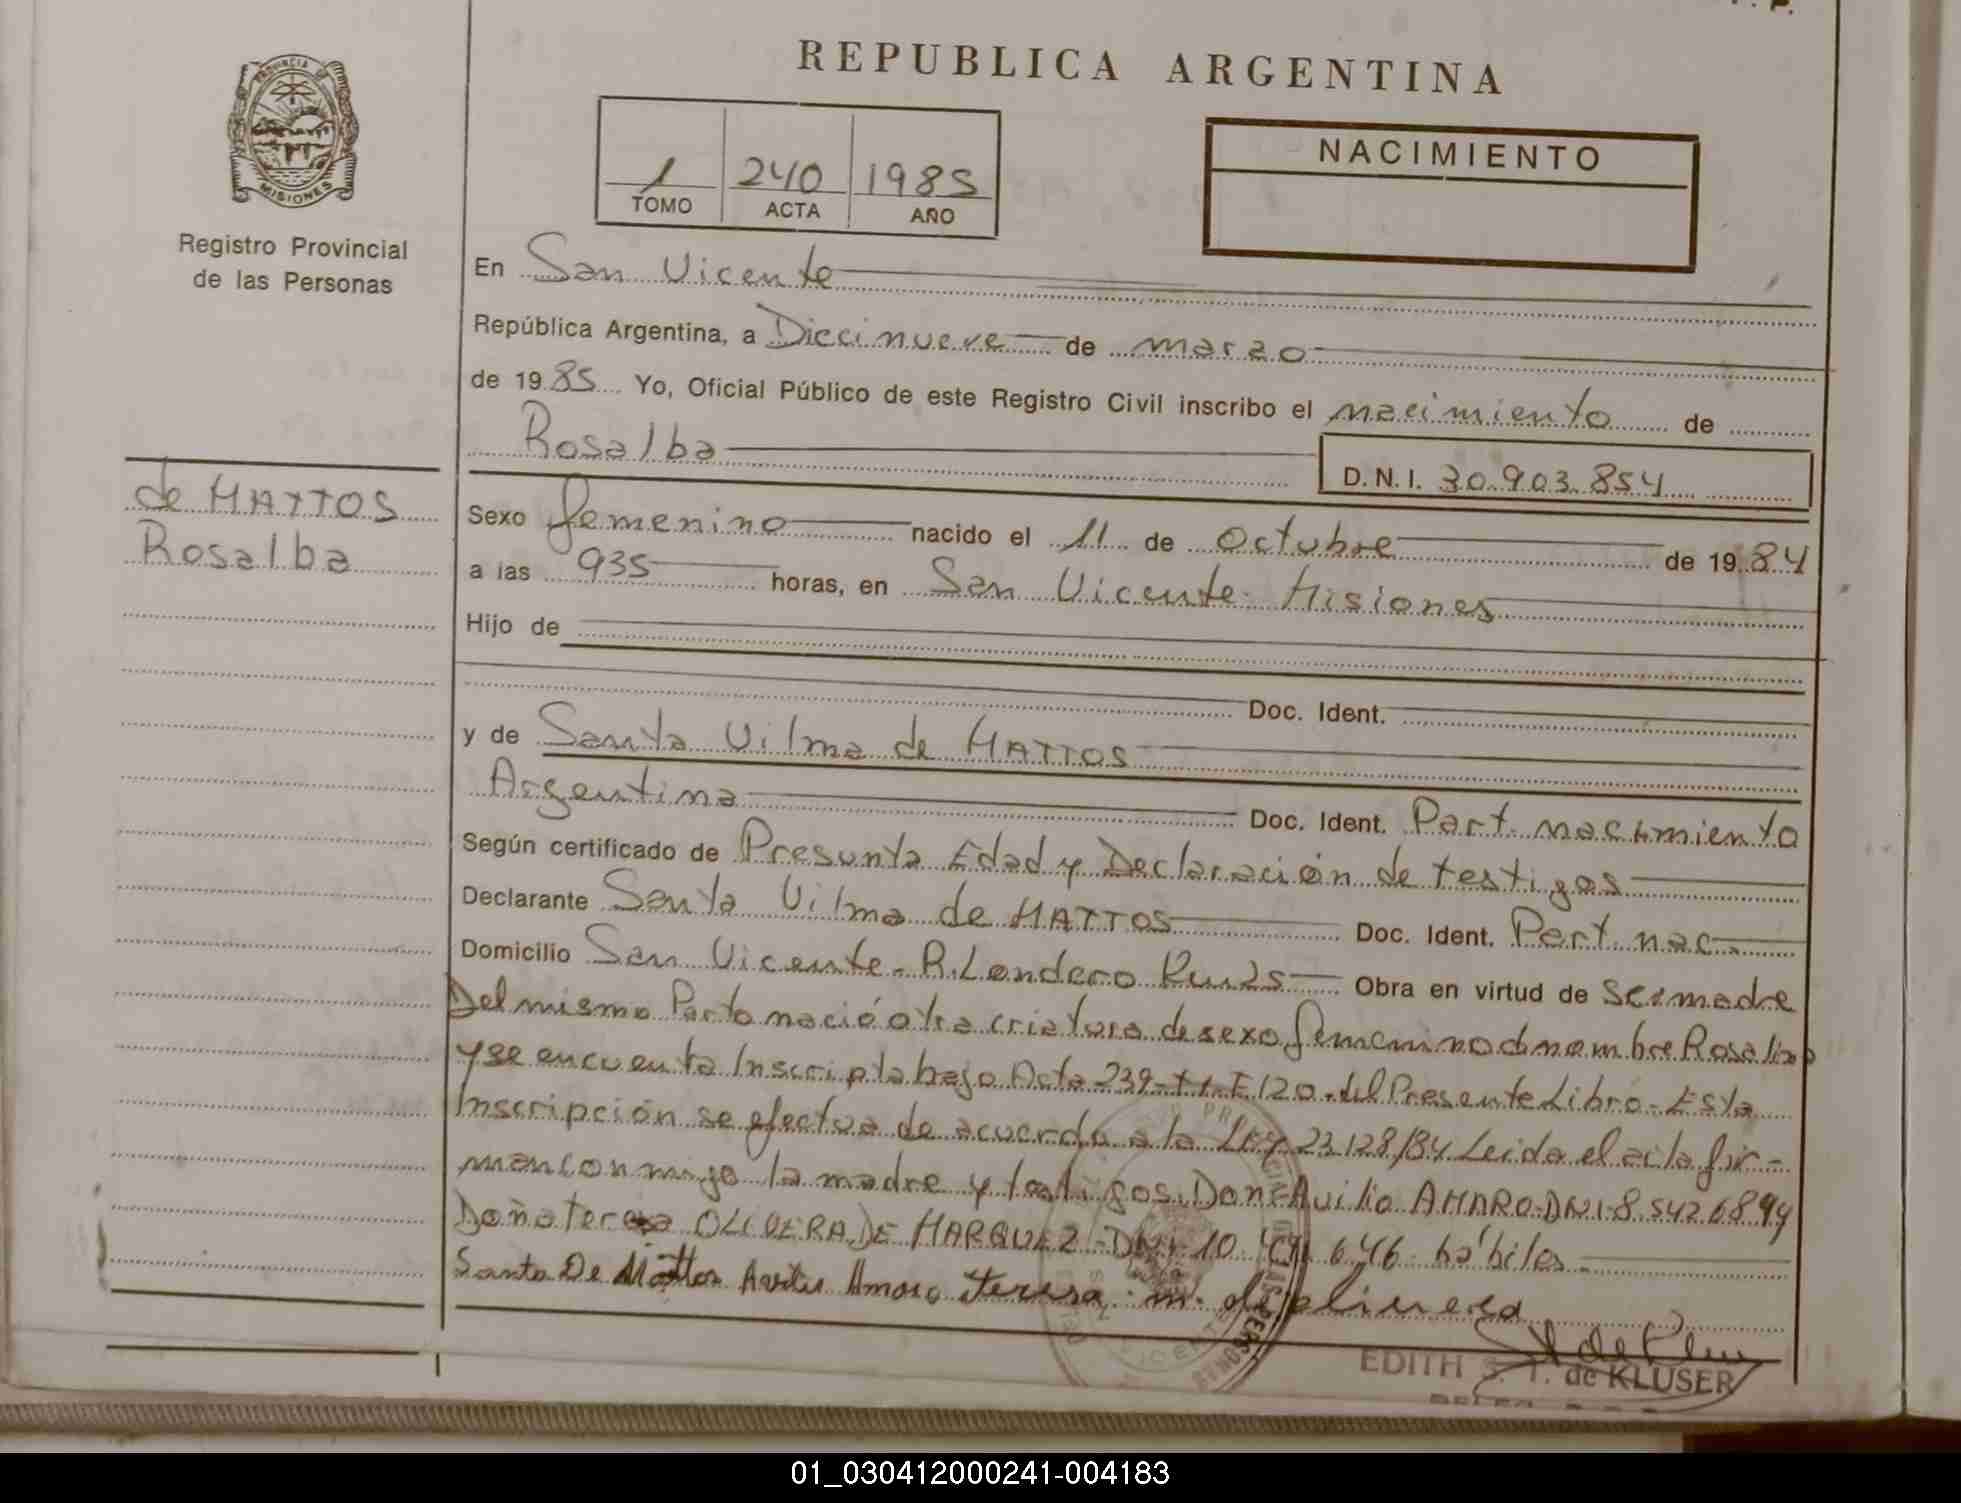 REPUBLICA ARGENTINA
PROVINCIA DE
MISIONES
Registro Provincial
de las Personas
1 240 1985
TOMO ACTA AÑO
NACIMIENTO
En San Vicente
República Argentina, a Diecinueve de marzo
de 1985 Yo, Oficial Público de este Registro Civil inscribo el nacimiento de
Rosalba
D.N.I. 30.903.854
de MATTOS
Rosalba
Sexo femenino nacido el 11 de octubre de 1984
a las 935 horas, en San Vicente Misiones
Hijo de
Doc. Ident.
y de Santa Vilma de MATTOS
Argentina Doc. Ident. Part. nacimiento
Según certificado de Presunta Edad y Declaración de testigos
Declarante Santa Vilma de MATTOS Doc. Ident. Part. nac.
Domicilio San Vicente - R. Londero Obra en virtud de Ser madre
Del mismo Parto nació otra criatura de sexo femenino d nombre Rosalina
y se encuenta Inscripta bajo Acta 239-T1-F120 del Presente Libro - Esta
Inscripción se efectua de acuerdo a la Ley 23.128/84 Leida el acta fir-
man conmigo la madre y testigos Don Avilio AMARO-DNI-8.542.6894
Doña teresa OLIVERA DE MARQUEZ - DNI 10. 646 hábiles
Santa De Mattos Amaro teresa m. de olivera
EDITH S. T. de KLUSER
01_030412000241-004183